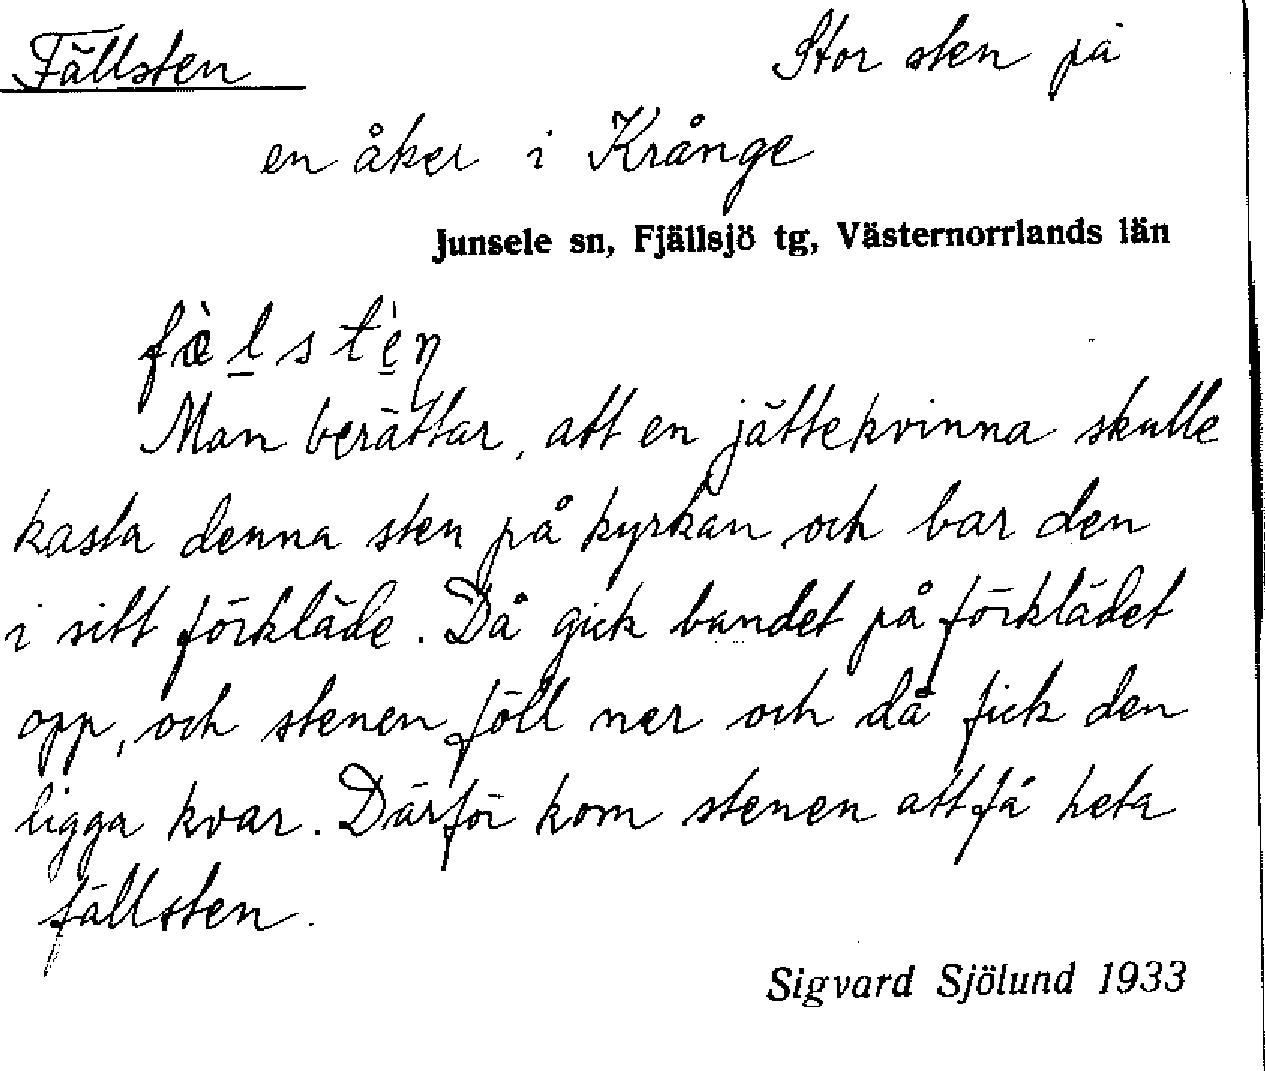 Fällsten Stor sten på
en åker i Krånge
Junsele sn, Fjällsjö tg, Västernorrlands län
fæ̀lsté̩n
Man berättar, att en jättekvinna skulle
kasta denna sten på kyrkan och bar den
i sitt förkläde. Då gick bandet på förklädet
opp, och stenen föll ner och då fick den
ligga kvar. Därför kom stenen att få heta
fällsten.
Sigvard Sjölund 1933